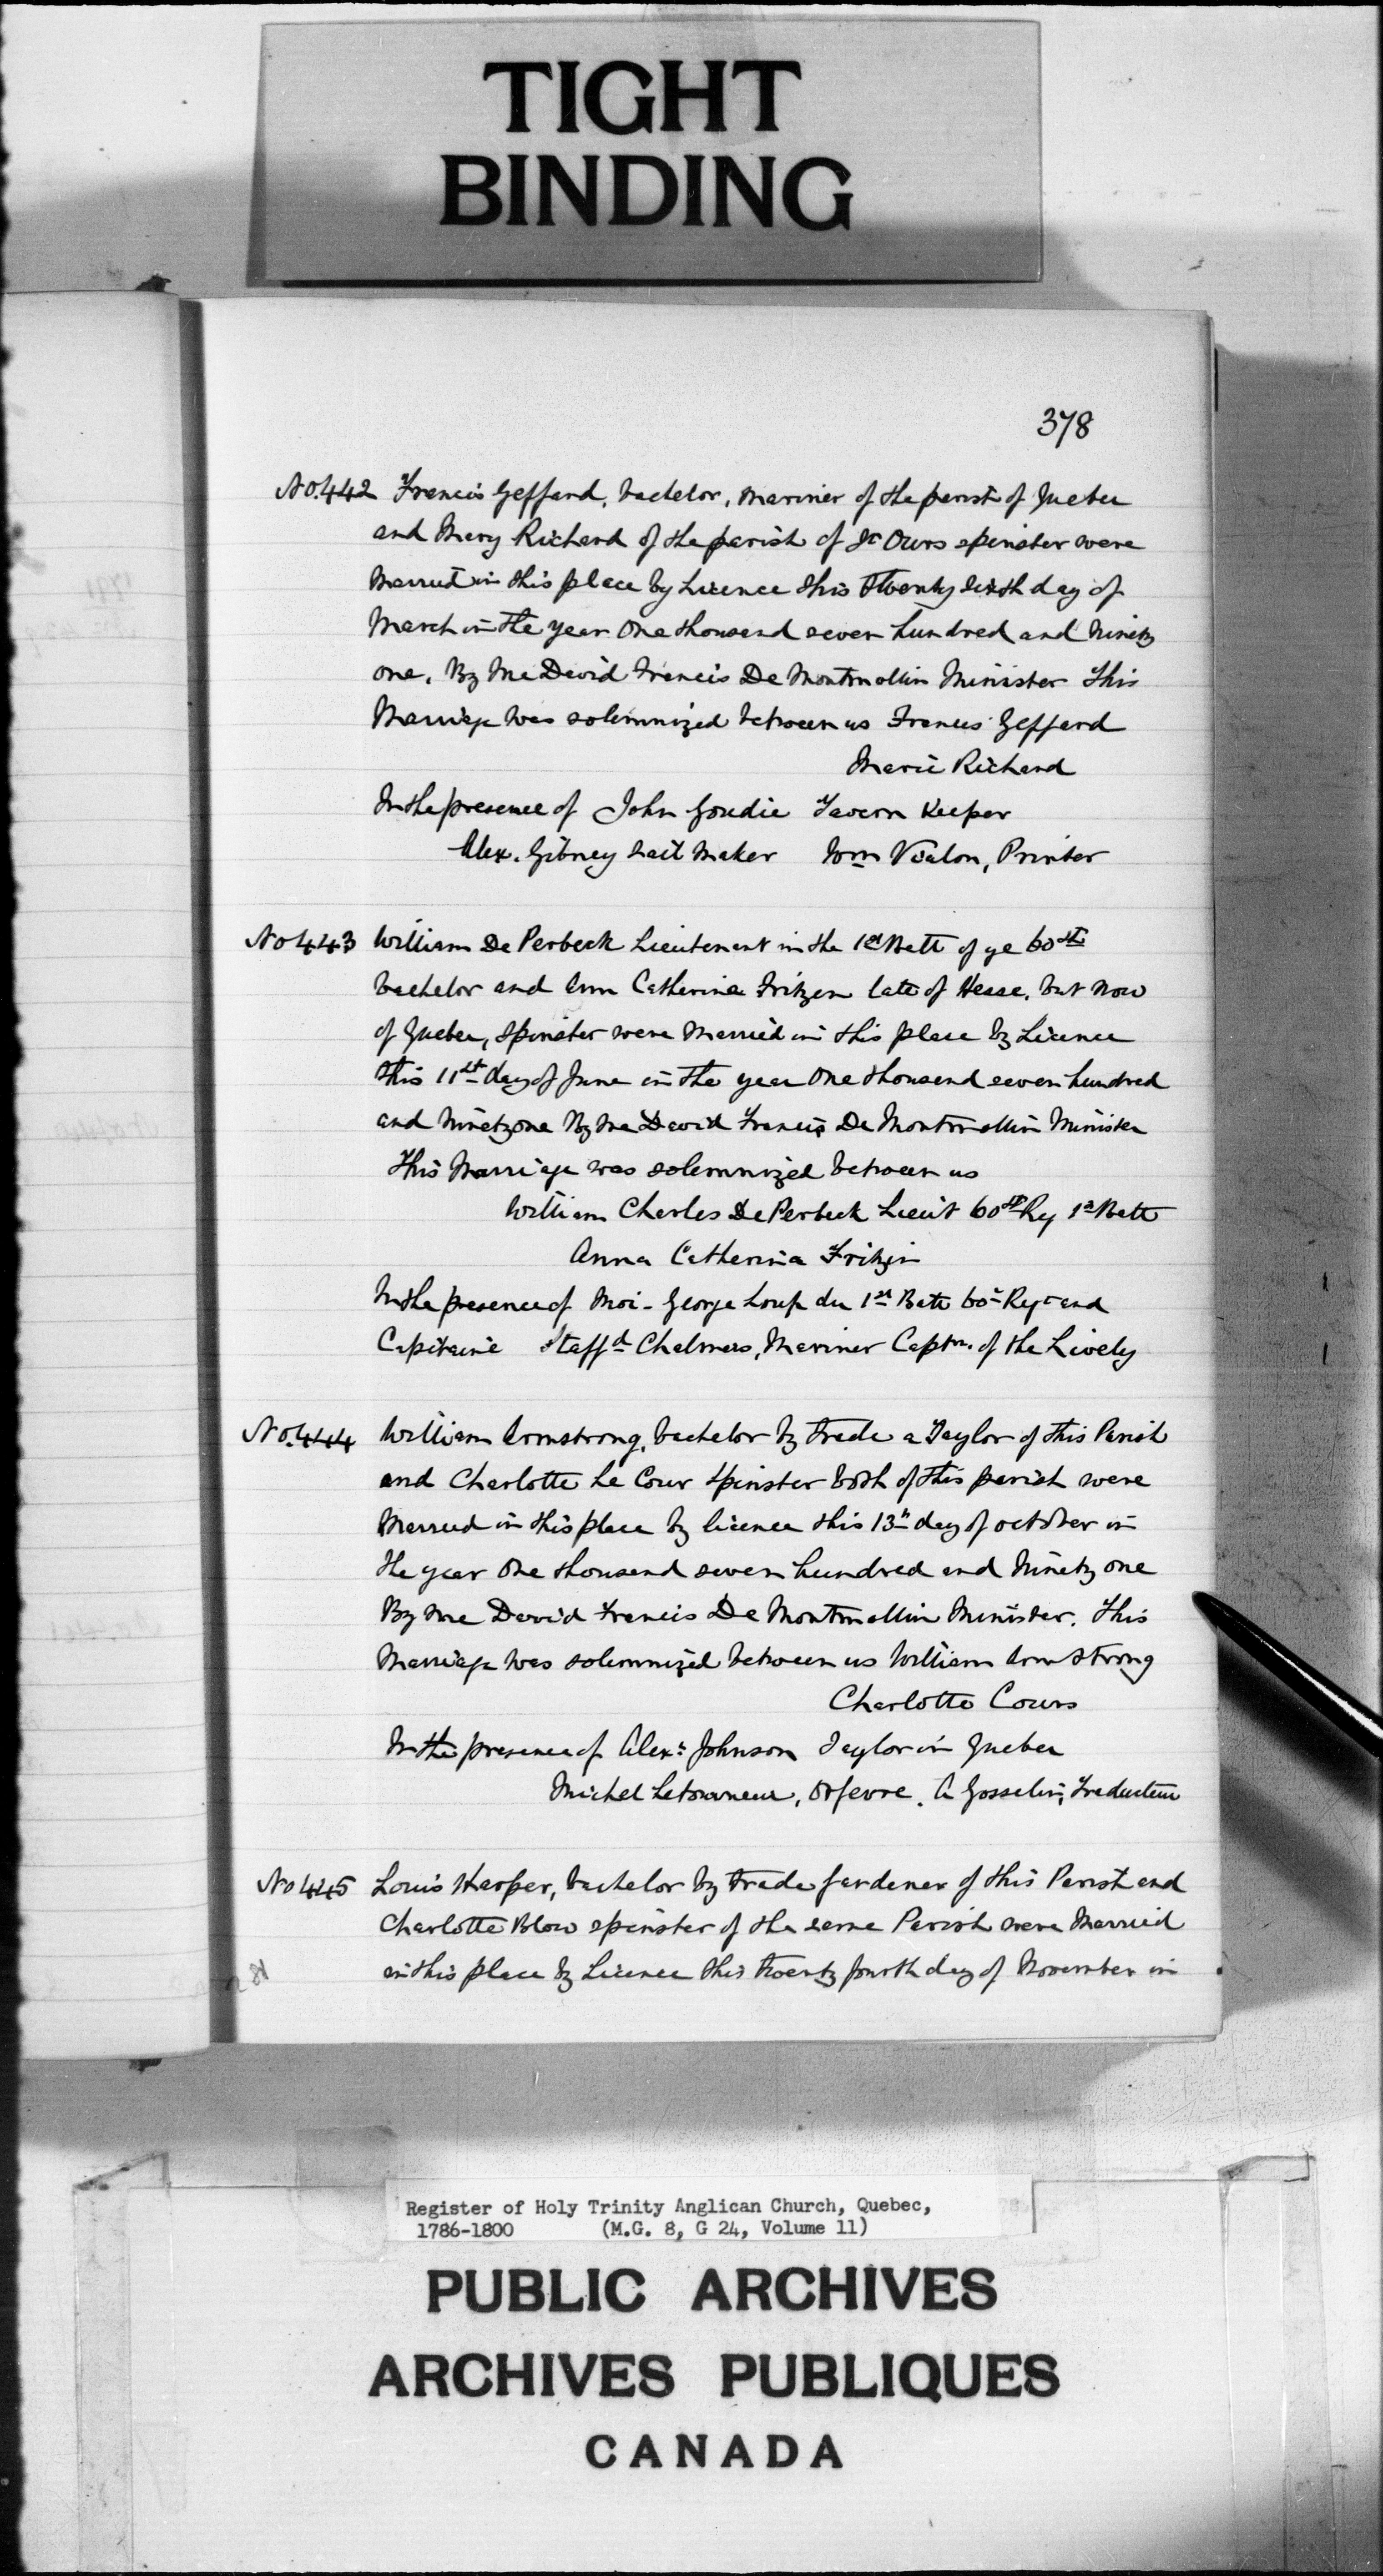 TIGHT
BINDING
378
No. 442 Francis Geffard, bachelor, mariner of the parish of Quebec
and Mary Richard of the parish of St Ours spinster were
Married in this place by Licence this Twenty sixth day of
March in the year One thousand seven hundred and Ninety
one, By Me David Francis De Montmollin Minister This
Marriage was solemnized between us Francis Geffard
Marie Richard
In the presence of John Goudie Tavern Keeper
Alex. Gibney Sail Maker Wm Vialon, Printer
No 443 William De Perbeck Lieutenant in the 1st Batt of ye 60th
bachelor and Ann Catherine Fritzen late of Hesse, but now
of Quebec, Spinster were Married in this place by Licence
this 11st day of June in the year One thousand seven hundred
and Ninety one By Me David Francis De Montmollin Minister
This Marriage was solemnized between us
William Charles De Perbeck Lieut 60th Rg 1st Batt
Anna Catherina Fritzin
In the presence of Moi - George Loup du 1st Batt 60e Regt and
Capitaine Staffd Chalmers, Mariner Captn. of the Lively
No. 444 William Armstrong, bachelor by trade a Taylor of this Parish
and Charlotte Le Cour Spinster both of this parish were
Married in this place by licence this 13th day of october in
the year One thousand seven hundred and Ninety one
By me David Francis De Montmollin Minister. This
Marriage was solemnized between us William Armstrong
Charlotte Cours
In the presence of Alexr Johnson Taylor in Quebec
Michel Letourneur, Orfevre. A Gosselin, Traducteur
No 445 Louis Harper, bachelor by trade gardener of this Parish and
Charlotte Blow spinster of the same Parish were Married
in this place by Licence this twenty fourth day of November in
Register of Holy Trinity Anglican Church, Quebec,
1786-1800 (M.G. 8, G 24, Volume 11)
PUBLIC ARCHIVES
ARCHIVES PUBLIQUES
CANADA